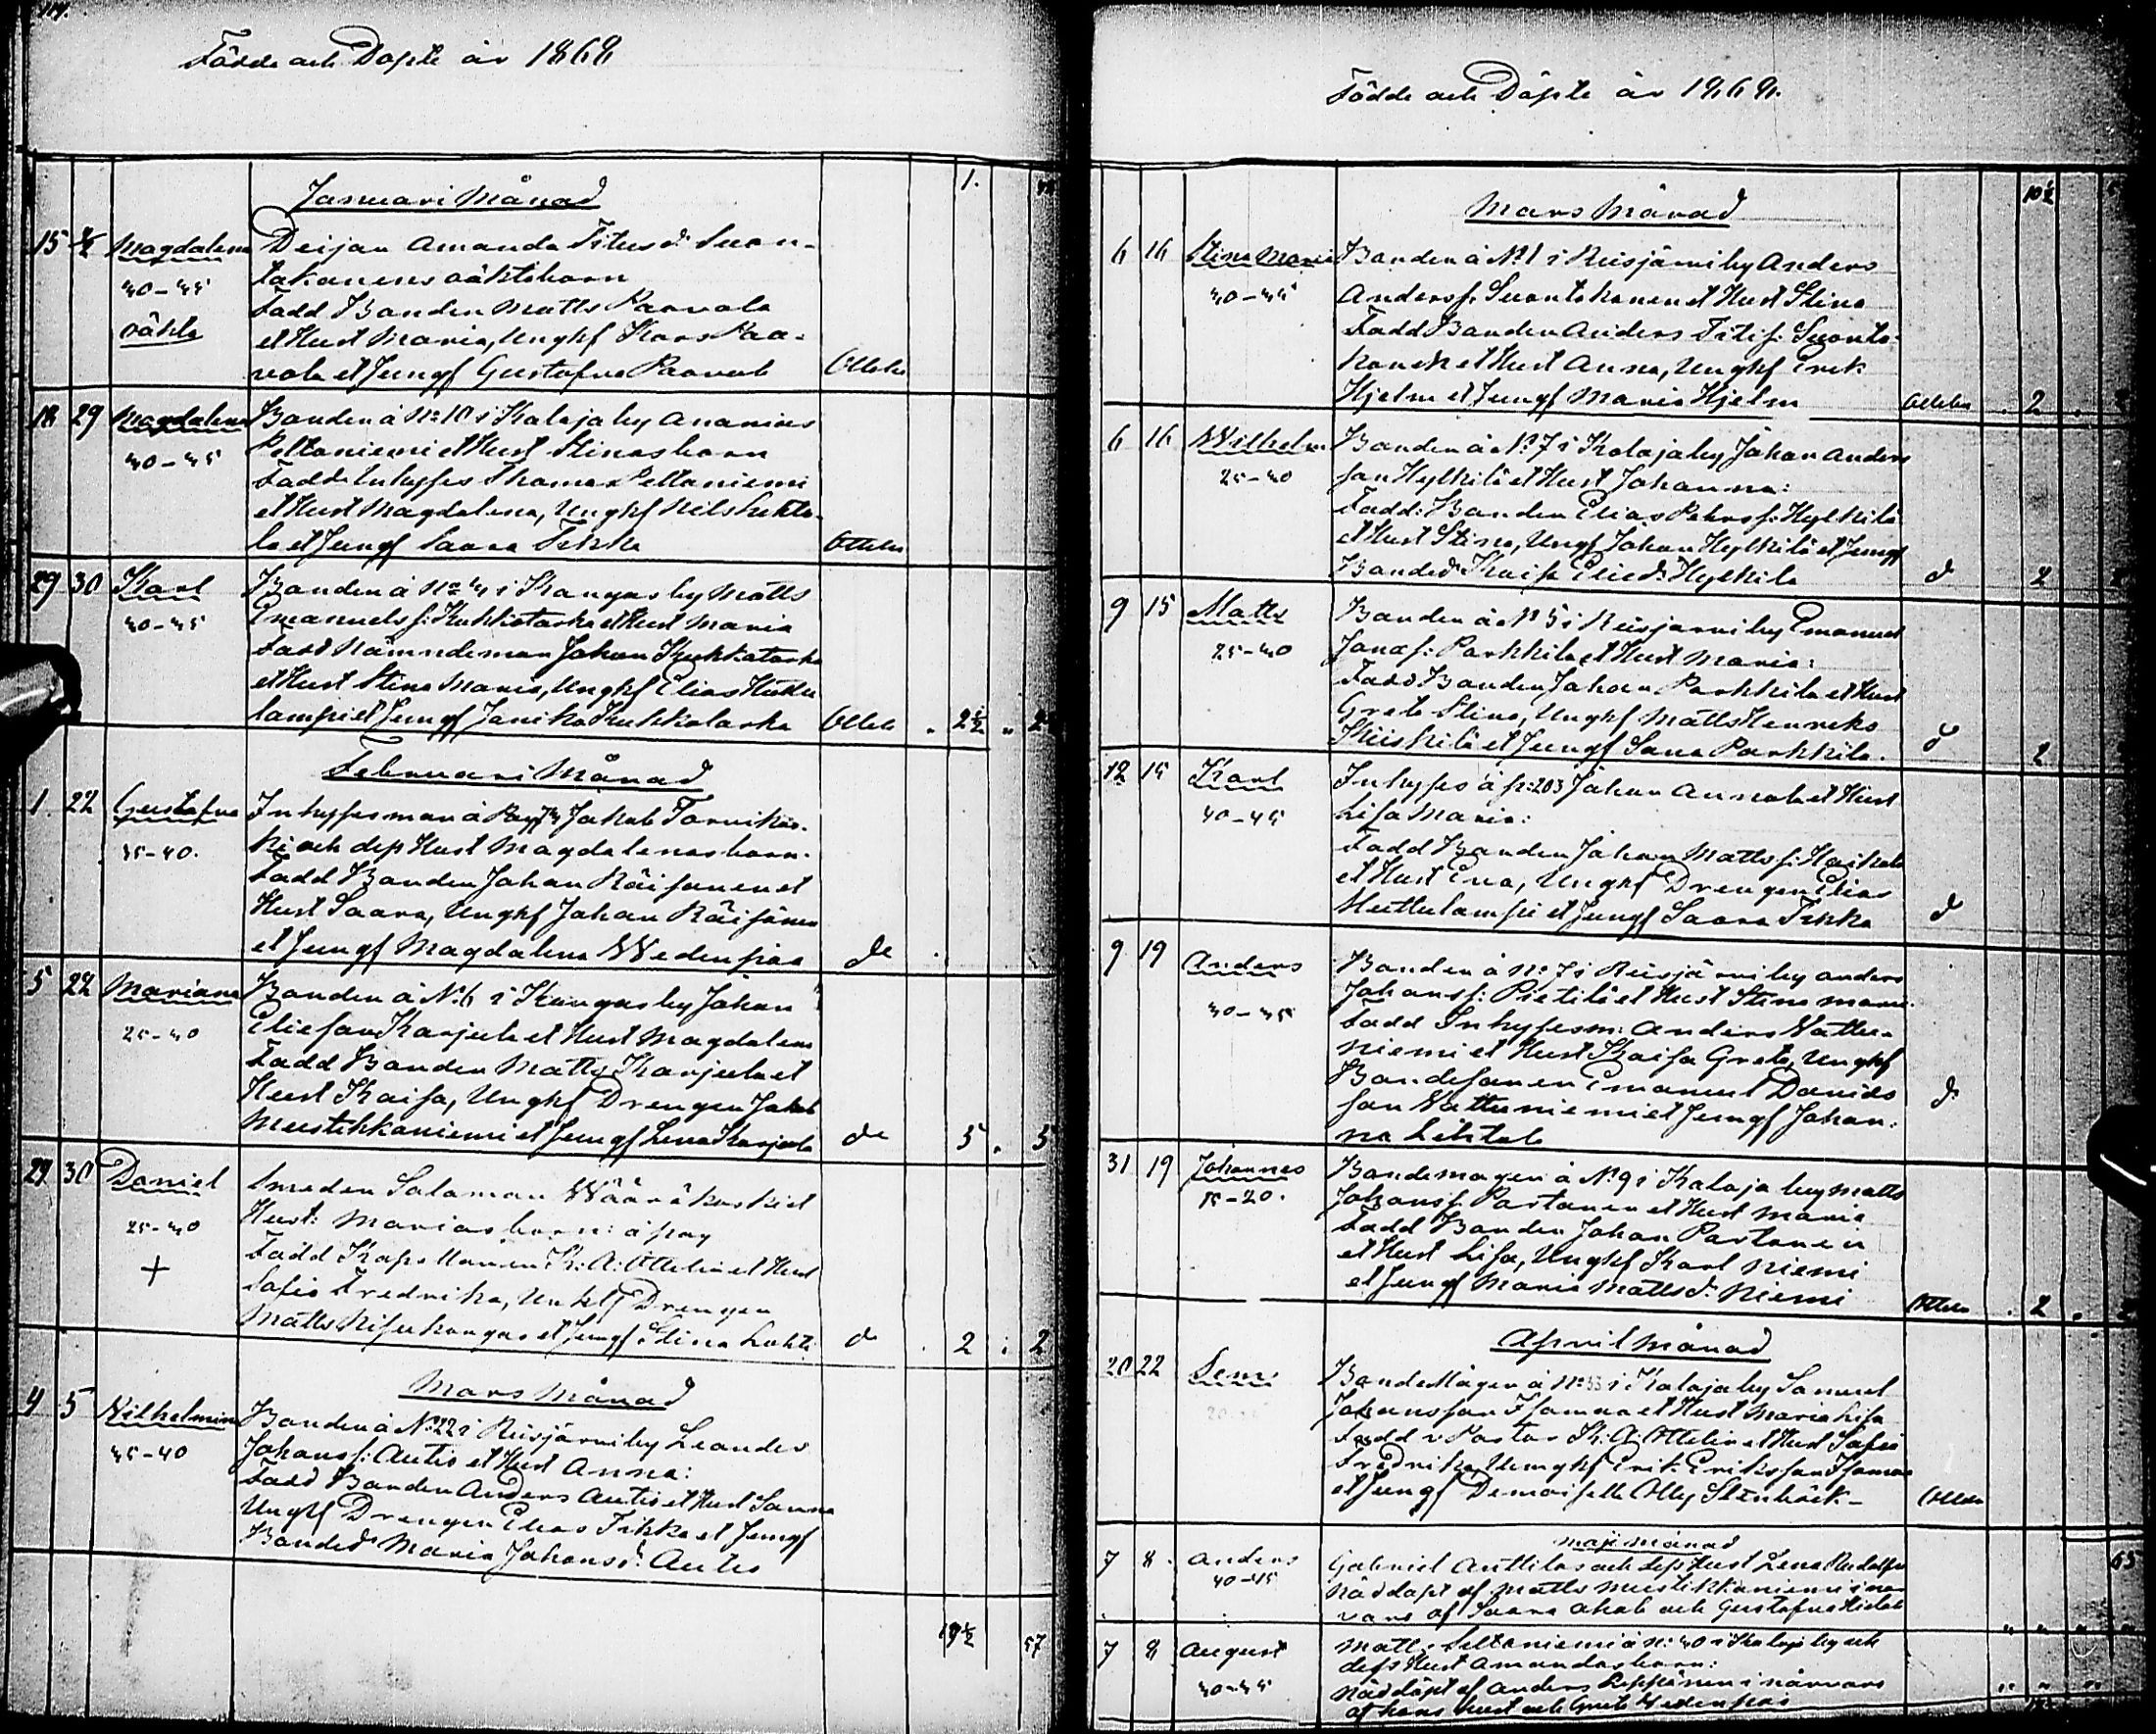 Födde och Döpte år 1868
Januari Månad
1.
15 Magdalena Deijan Amanda Titusdr Suon-
40-45 takanens oäkta barn
oäkta Fadd Bonden Matts Paavola
et Hust Maria, Ungkf Paa-
vola et Jungf Gustafva Paavola Ottelin
18 29 Magdalena Bonden å No 10 i Kalaja by Ananias
40-45 Peltoniemi et Hust Stinas barn
Fadd Inhyses Thomas Peltoniemi
et Hust Magdalena, Ungkf Nils Lehto-
la et Jungf Saara Tikka Ottelin
29 30 Karl Bonden å No 4 i Kangas by Matts
40-45 Emanuelsf: Kukkotaska et Hust Maria
Fadd Nämndeman Johan Kukkotaska
et Hust Stina Maria, Ungkf Elias Huttu
lampi et Jungf Kukkotaska Ottelin 2½
Februari Månad
1 22 Gustafva Inhysesman å Jakob Torvikos-
35-40. ki och des Hust Magdalenas barn.
Fadd Bonden Johan Räisänen et
Hust Saara, Ungkf Johan Räisänen
et Jungf Magdalena Wedenpää de
5 22 Mariana Bonden å No 6 i Kangas by Johan
25-40 Eliesson Karjula et Hust Magdalena
Fadd Bonden Matts Karjula et
Hust Kaisa, Ungkf Drengen Jakob
Mustikkaniemi et Jungf Lena Karjula de 5 . 5
29 30 Daniel Smeden Salomon Wääräkoski et
25-40 Hust: Marias barn: å
+ Fadd Kapellanen K: A: Ottelin et Hust
Sofia Fredrika, Ungkf Drengen
Matts et Jungf Stina Lahti d . 2 : 2
Mars Månad
4 5 Wilhelmina Bonden å No 22 i Reisjärvi by Leander
35-40 Johansf: Autio et Hust Anna:
Fadd Bonden Anders Autio et Hust Sanna
Ungkf Drengen Elias Tikka et Jungf
Bonded. Maria Johansd: Autio
19½ 57
Födde och Döpte år 1868.
Mars Månad
10½
6 16 Stina Maria Bonden å No 1 i Reisjärvi by Anders
40-45 Andersf. Suontakanen et Hust Stina
Fadd Bonden Anders Titif: Suonta-
kanen et Hust Anna, Ungkf Erik
Hjelm et Jungf Maria Hjelm Ottelin . 2 .
6 16 Wilhelm Bonden å No 7 i Kalaja by Johan Anders
25-40 son Hylkilä et Hust Johanna:
Fadd: Bonden Elias Pehrsf: Hylkilä
et Hust Stina, Ungf Johan Hylkilä et Jungf
Bonded. Kaisa Elied. Hylkilä d 2
9 15 Matts Bonden å No 5 i Reisjärvi by Emanuel
25-40 Parkkila et Hust Maria:
Fadd Bonden Johan Parkkila et Hust
Greta Stina, Ungkf Matts Henriks
Kiiskilä et Jungf Sana Parkkila. d 2
12 15 Karl Inhyses å p: 203 Johan Annala et Hust
40-45 Lisa Maria:
Fadd Bonden Johan Mattsf: Haikola
et Hust Eva, Ungkf Drengen Elias
Huttulampi et Jungf Saara Tikka d
9 19 Anders Bonden å No 7 i Reisjärvi by Anders
40-45 Johansf: Pietilä et Hust Stina Maria
Fadd Inhysesm: Anders Wattu-
niemi et Hust Kaisa Greta, Ungkf
Bondesonen Emanuel Davids
son Wattuniemi et Jungf Johan-
na Lehtola d
31 19 Johannes Bondemågen å No 9 i Kalaja by Matts
15-20. Johansf. Partanen et Hust Maria
Fadd Bonden Johan Partanen
et Hust Lisa, Ungkf Karl Niemi
et Jungf Maria Mattsd: Niemi Ottelin . 2 .
April Månad
20 22 Bonde Mågen å No 33 i Kalaja by Samuel
Johansson et Hust Maria Lisa
Fadd v Pastor K: A: Ottelin et Hust Sofia
Fredrika, Ungkf Erik Eriksson
et Jungf Demoiselle Olly Stenbäck- Ottelin
Maji månad
7 8. Anders Gabriel Anttilas och des Hust Lena
40-45 Nöddöpt af Matts Mustikkaniemi i när
varo af Saara och Gustafva
65
7 8 August Matts Peltoniemi å N: 40 i Kalaja by och
40-45 des Hust Amandas barn:
Nöddöpt af Anders Leppänen i närvaro
af hans hust och Greta Wedenpää